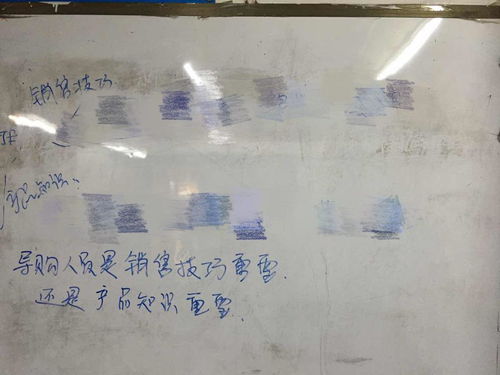 销售技巧
产品知识:
导购人员是销售技巧重要.
还是产品知识重要.